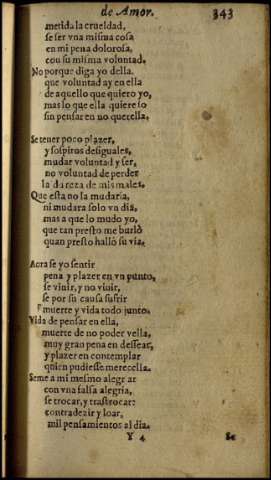 de Amor. 343
metida la crueldad,
se ser vna misma cosa
en mi pena dolorosa,
con su misma voluntad.
No porque diga yo della.
que voluntad ay en ella
de aquello que quiero yo,
mas lo que ella quiere lo
sin pensar en no querella.
Se tener poco plazer,
y sospiros desiguales,
mudar voluntad y ser,
no voluntad de perder
la dureza de mis males.
Que esta no la mudaria,
ni mudara solo vn dia,
mas a que lo mudo yo,
que tan presto me burlò
quan presto hallò su via.
Aora se yo sentir
pena y plazer en vn punto,
se viuir, y no viuir,
se por su causa sufrir
muerte y vida todo junto.
Vida de pensar en ella,
muerte de no poder vella,
muy gran pena en dessear,
y plazer en contemplar
quien pudiesse merecella.
Seme a mi mesmo alegrar
con vna falsa alegria,
se trocar, y trastrocar:
contradezir y loar,
mil pensamientos al dia.
Y 4 Se